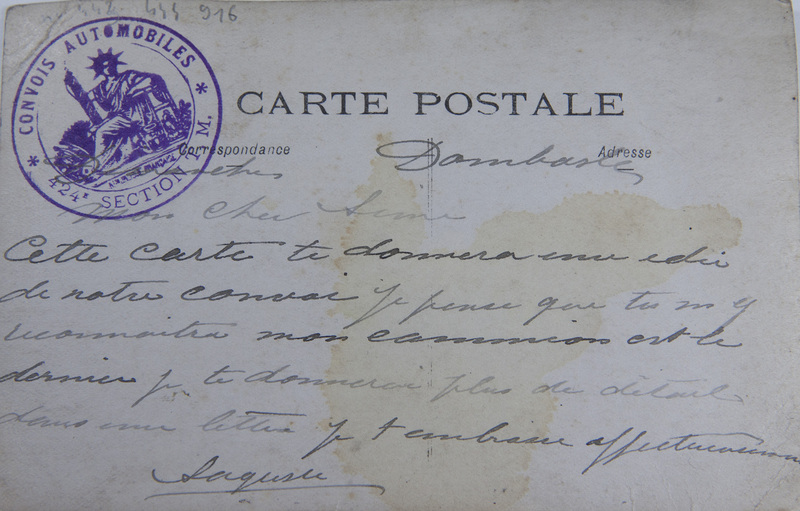 916
CONVOIS AUTOMOBILES
424e SECTION T. M.
CARTE POSTALE
Correspondance
Adresse
Dombasle
Mon cher
Cette carte te donnera une edié
de notre convoi je pense que tu m y
reconnaitra mon cammion est le
dernier je te donnerai plus de détail
dans une lettre je t embrasse affectueusement